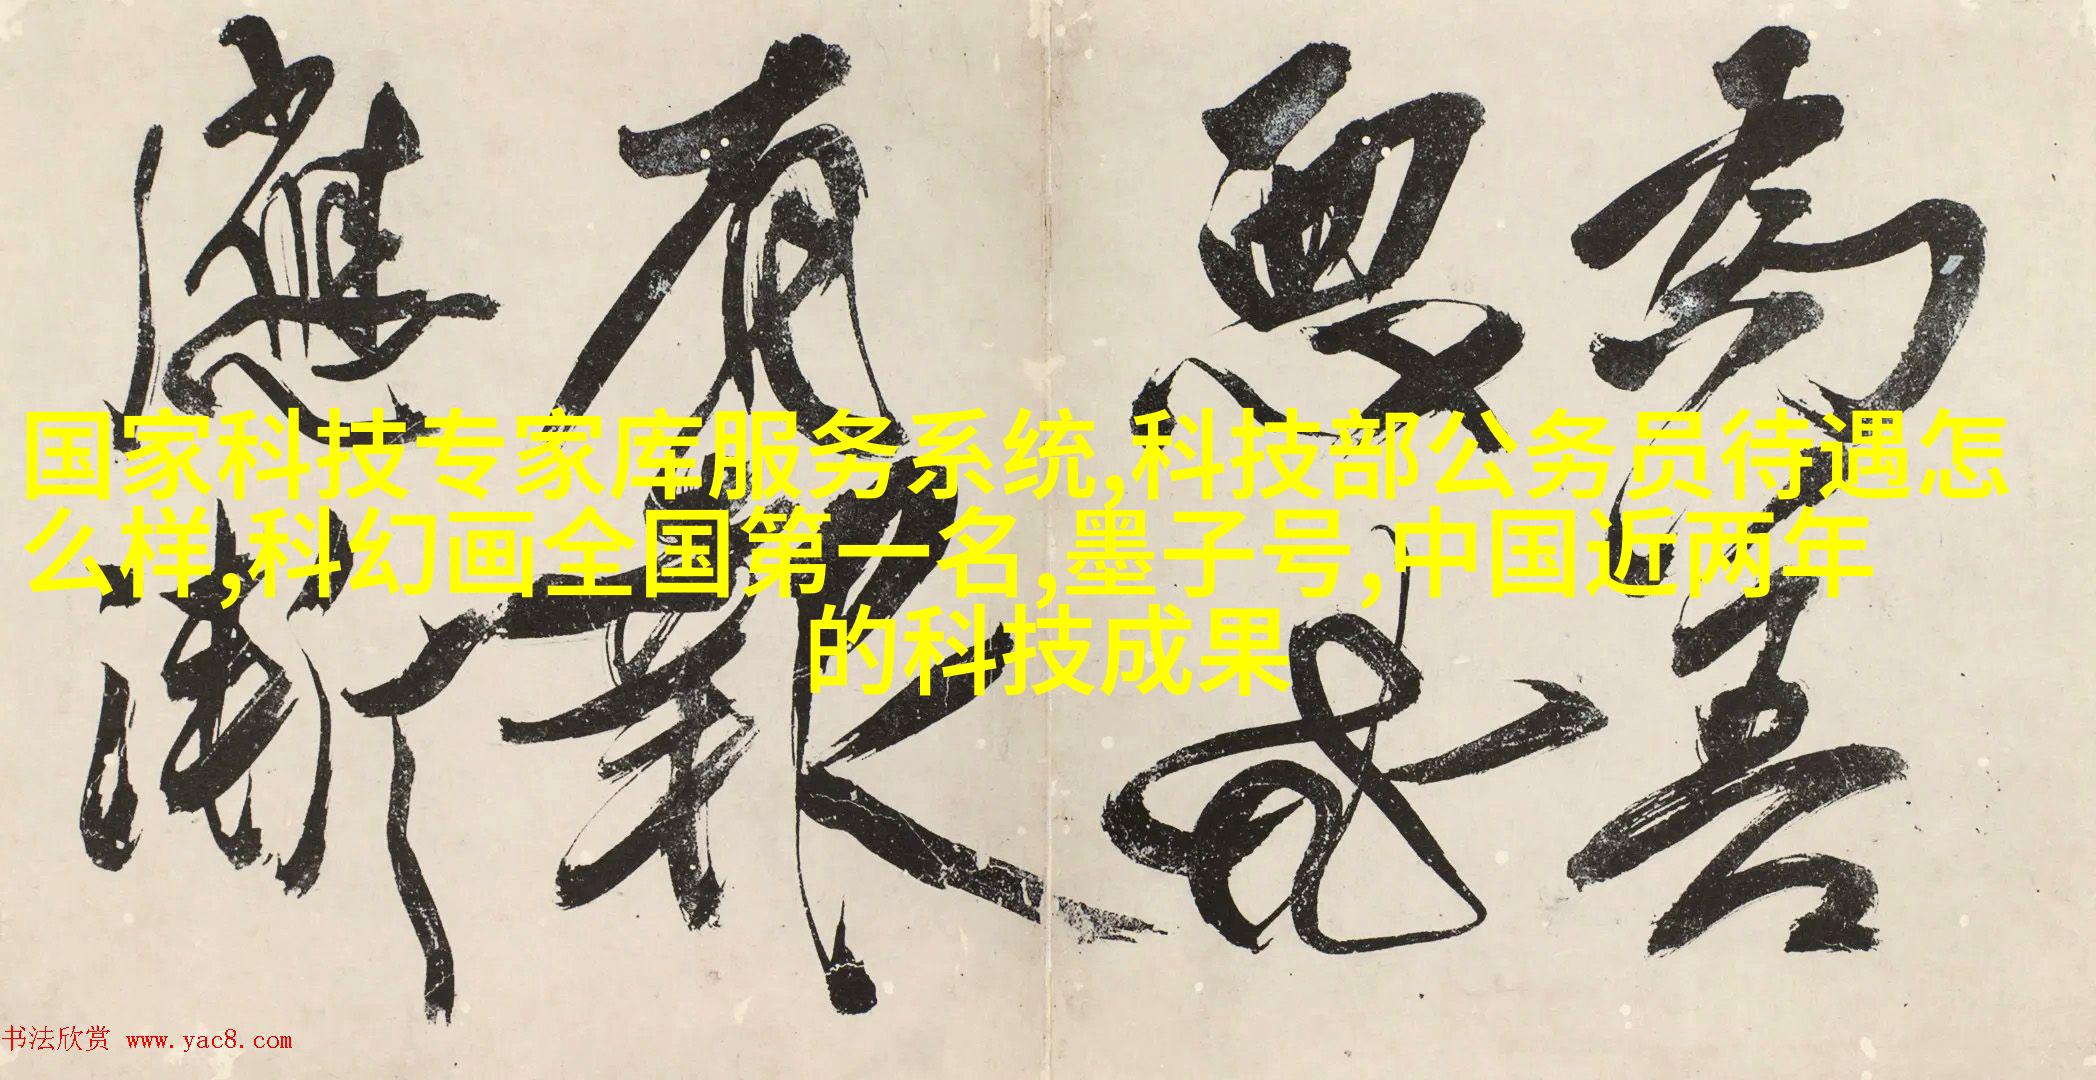 為善
惡
有報
應漸
国家科技专家库服务系统,科技部公务员待遇怎
么样,科幻画全国第一名,墨子号,中国近两年
的科技成果
书法欣赏 www.yac8.com